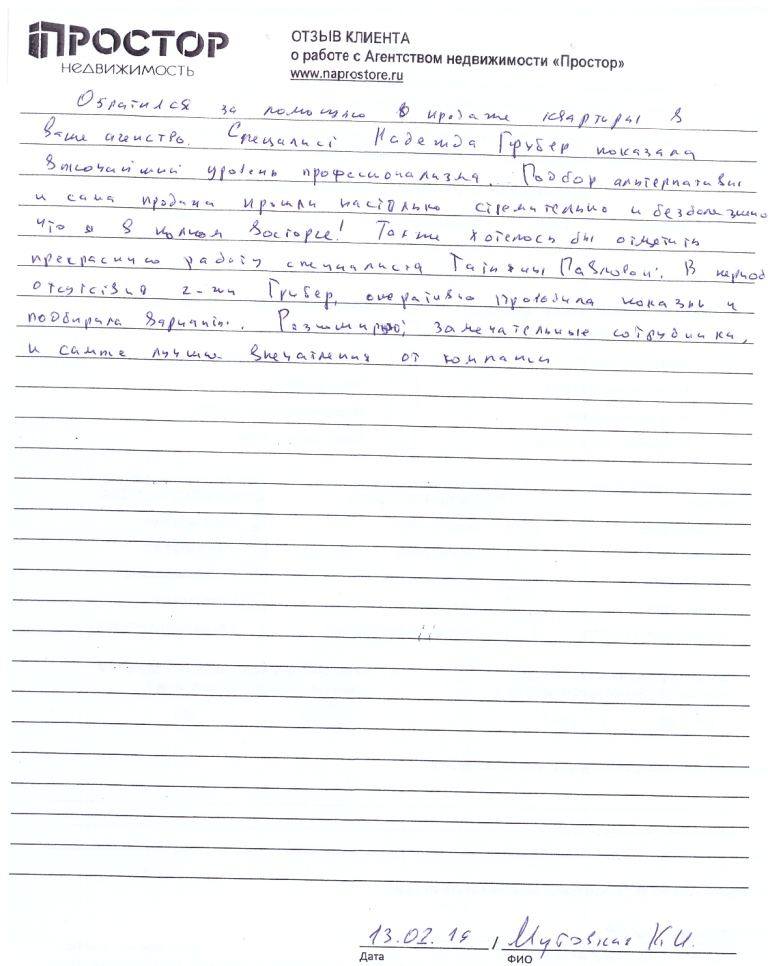 ПРОСТОР
НЕДВИЖИМОСТЬ
ОТЗЫВ КЛИЕНТА
о работе с Агентством недвижимости «Простор»
www.naprostore.ru
Обратился за помощью в продаже квартиры в
Ваше агенство. Специалист Надежда Грубер показала
высочайший уровень профессионализма. Подбор альтернативы
и сама продажа прошли настолько стремительно и безболезненно
что я в полном восторге! Также хотелось бы отметить
прекрасную работу специалиста Татьяны Павловой. В период
отсутствия г-жи Грубер, оперативно проводила показы и
подбирала варианты. замечательные сотрудники,
и самые лучшие впечатления от компании
13.02.19 /
Дата
ФИО